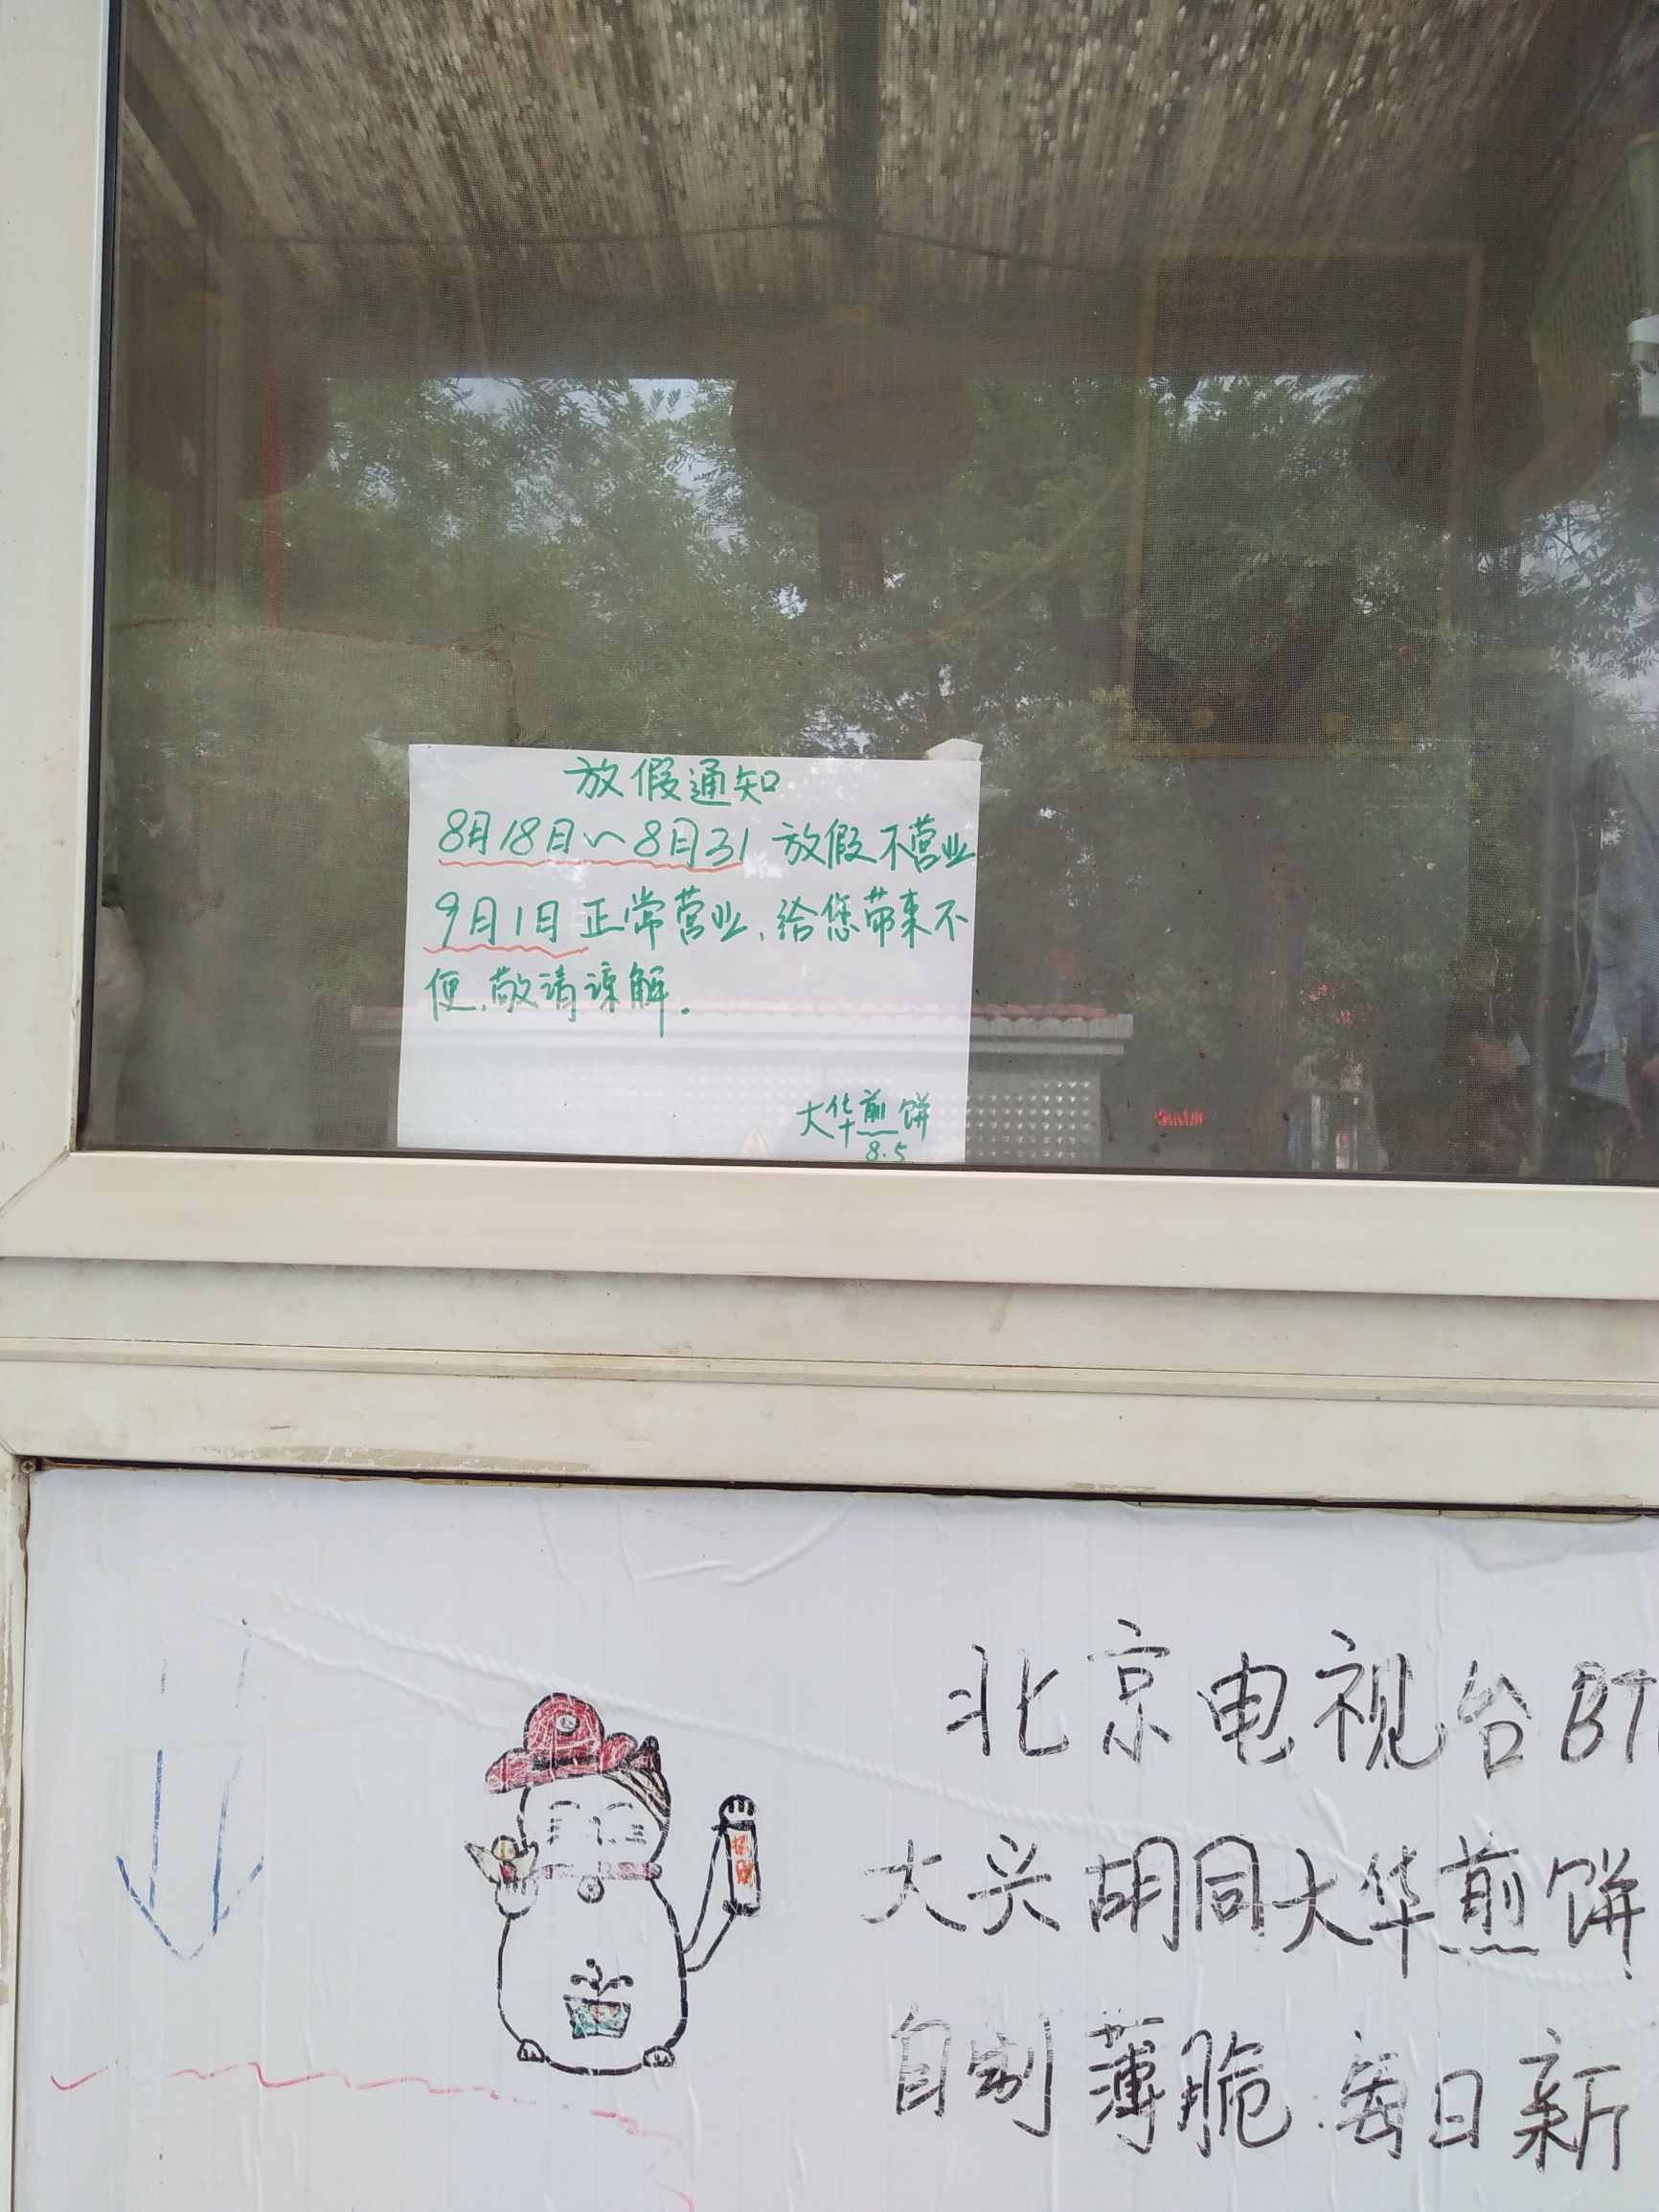 放假通知
8月18日~8月31 放假不营业
9月1日正常营业,给您带来不
便,敬请谅解.
大华煎饼
8.5
北京电视台BT
大兴胡同大华煎饼
自制薄脆 每日新